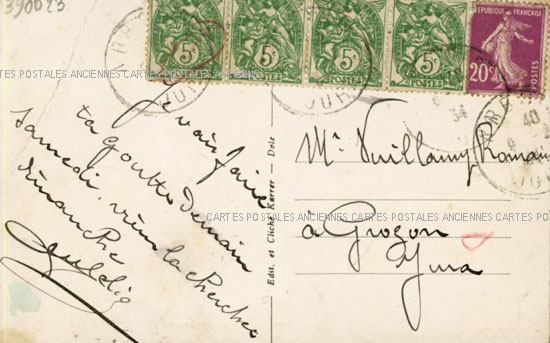 390023
5c
5c
5c
5c
POSTES
POSTES
POSTES
REPUBLIQUE FRANÇAISE
20c
POSTES
JURA
34
40
CARTES POSTALES ANCIENNES CARTES POSTALES ANCIENNES CARTES POSTALES ANCIENNES CARTES POSTALES ANCIENNES
Je vais faire
ta goutte demain
samedi, viens la chercher
dimanche
Edit. et Cliché Karrer — Dole
Mr Vuillamy Romain
à Grozon
Jura
CARTES POSTALES ANCIENNES CARTES POSTALES ANCIENNES CARTES POS